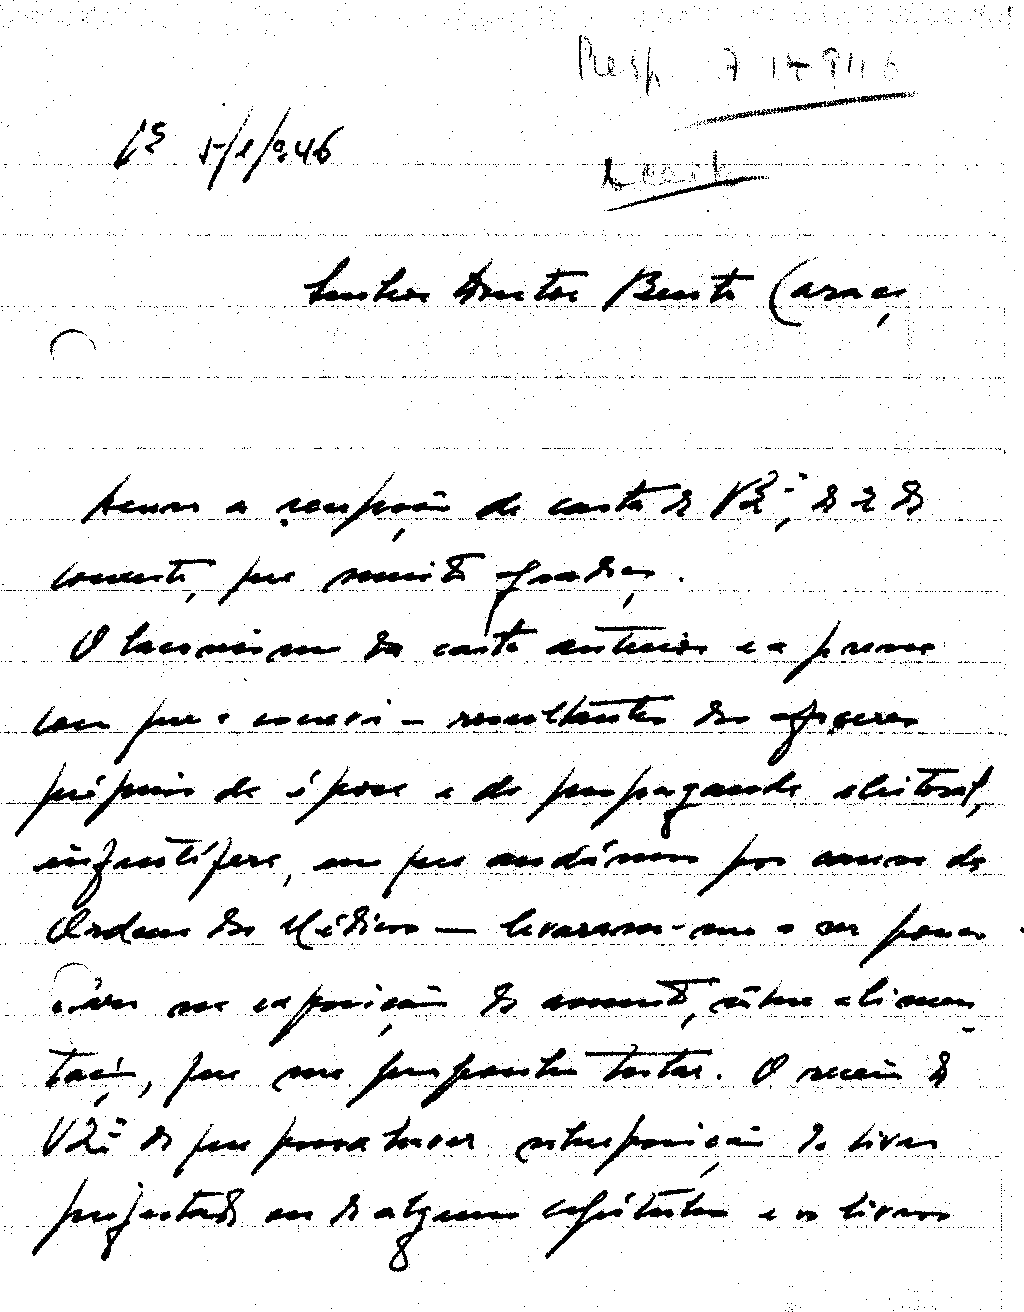 Resp 7-1-946
5/1/946
Senhor Doutor Bento Caraça
Acuso a recepção da carta de V. Ex.ª, de 2 do
corrente, que muito agradeço.
O laconismo da carta anterior e a pressa
com que a escrevi — resultantes dos afazeres
próprios da época e da propaganda eleitoral,
infrutífera, em que andámos por causa da
Ordem dos Médicos — levaram-me a ser pouco
claro na exposição do assunto, sobre alimen-
tação, que me proponho tratar. O receio de
V. Ex.ª de que possa haver sobreposição do livro
projectado ou de alguns capítulos e os livros